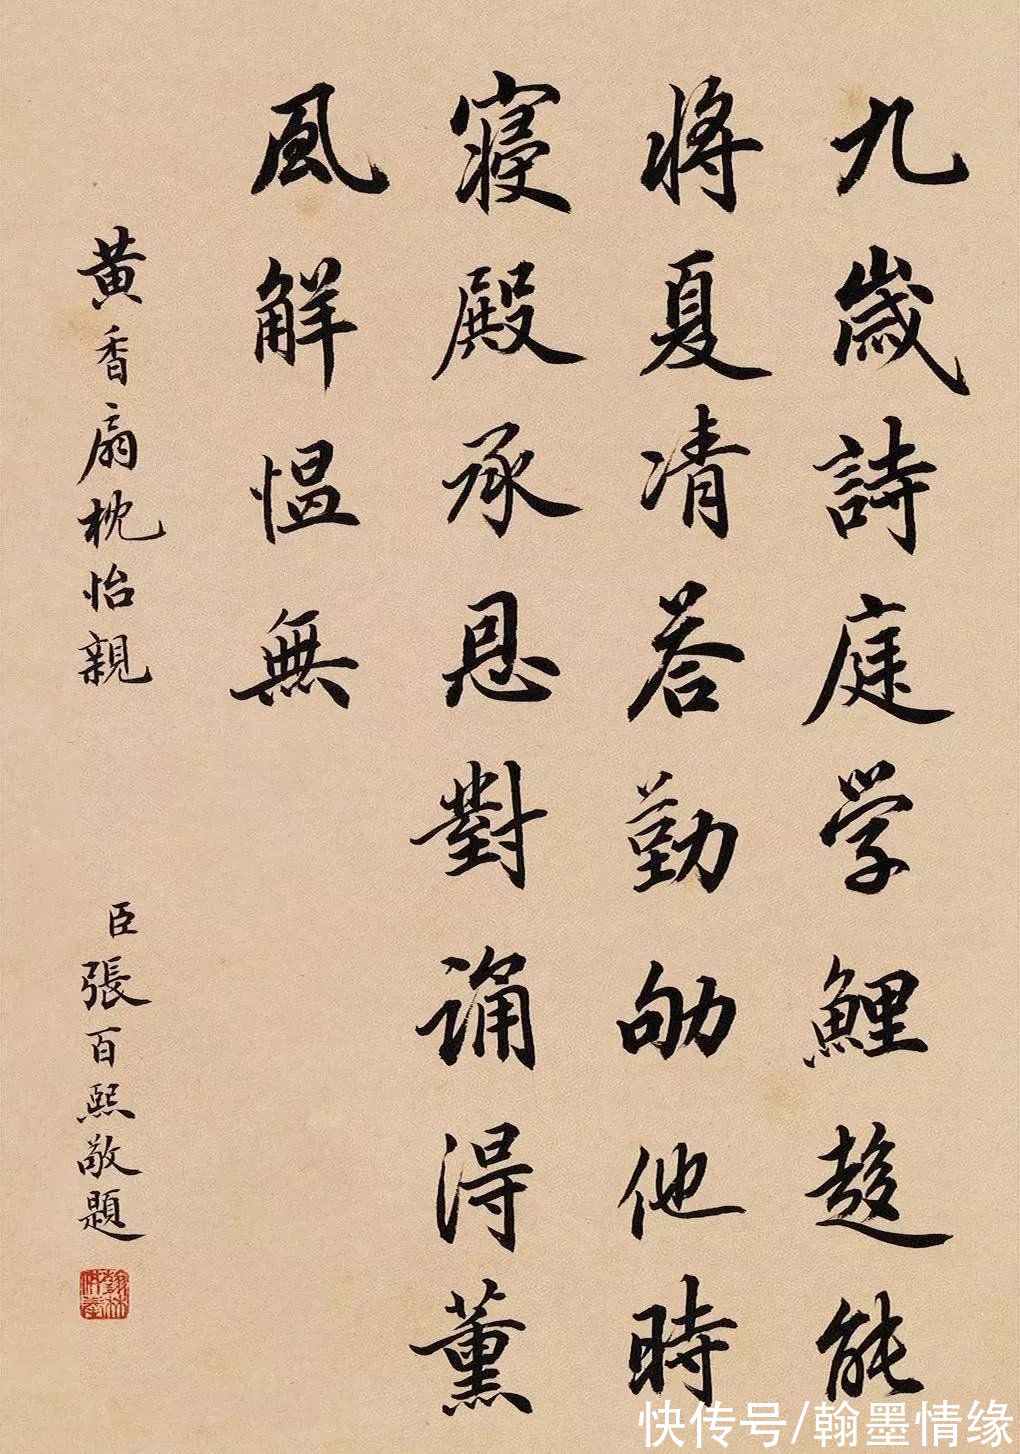 九歲詩庭学鯉趍能
將夏凊荅勤劬他時
寢殿承恩對誦得薰
風解愠無
黄香扇枕怡親
臣張百熙敬題
快传号/翰墨情缘